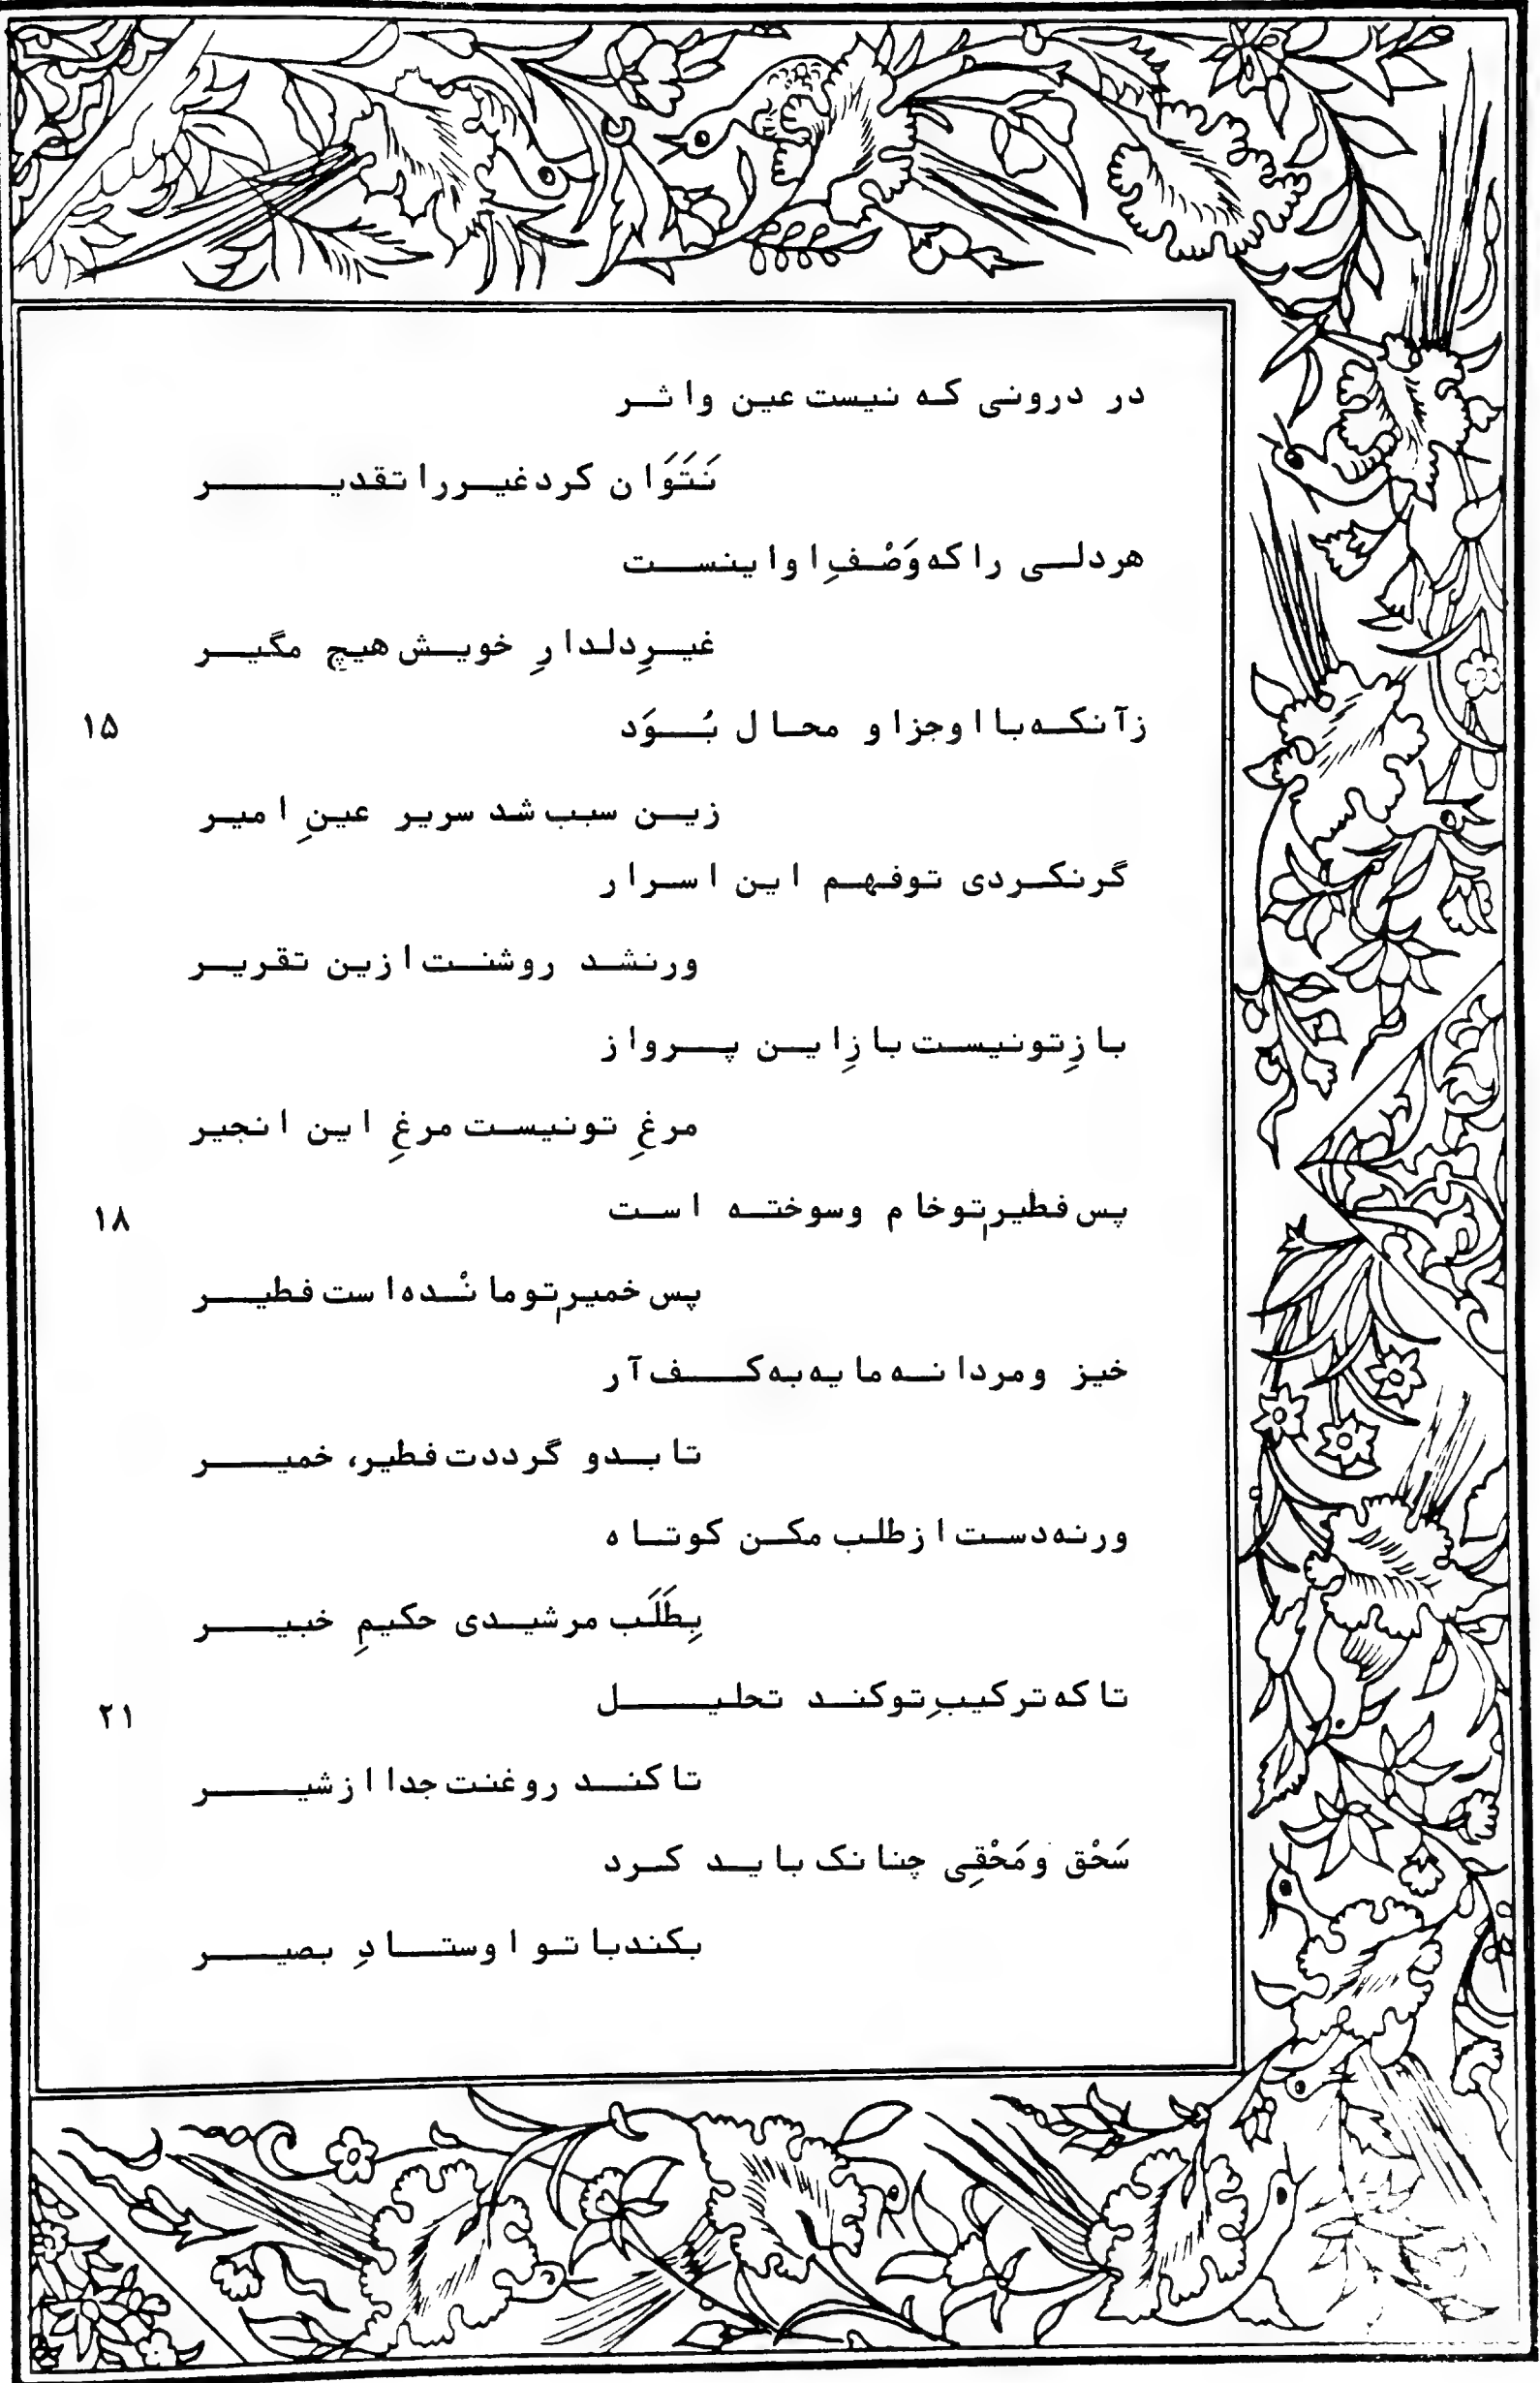 در درونی که نیست عین واثر
نَتَوَان کرد غیر را تقدیر
هر دلی را که وَصْفِ او اینست
غیرِ دلدارِ خویش هیچ مگیر
زآنکه با او جز او محال بُوَد ۱۵
زین سبب شد سریر عینِ امیر
گر نکردی تو فهم این اسرار
ور نشد روشنت ازین تقریر
بازِ تو نیست بازِ این پرواز
مرغِ تو نیست مرغِ این انجیر
پس فطیرِ تو خام وسوخته است ۱۸
پس خمیرِ تو مانْده است فطیر
خیز ومردانه مایه به کف آر
تا بدو گرددت فطیر، خمیر
ورنه دست از طلب مکن کوتاه
بِطَلَب مرشیدی حکیمِ خبیر
تا که ترکیبِ تو کند تحلیل ۲۱
تا کند روغنت جدا از شیر
سَحْق ومَحْقِی چنانک باید کرد
بکند با تو اوستادِ بصیر